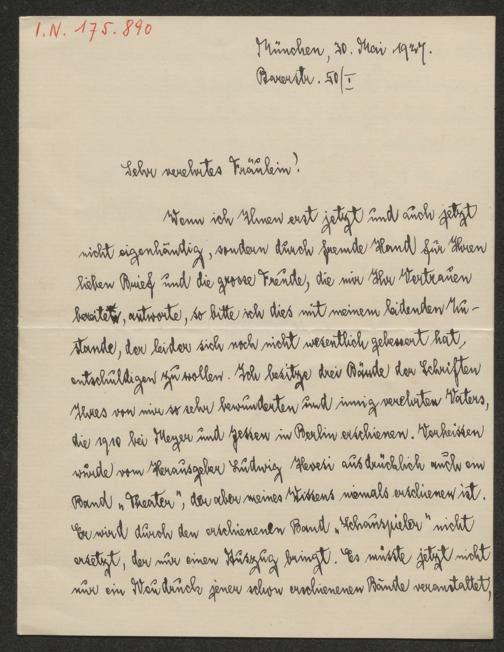 I.N. 175.890
München, 20. Mai 1927.
Barerstr. 50/I
Sehr verehrtes Fräulein!
Wenn ich Ihnen erst jetzt und auch jetzt
nicht eigenhändig, sondern durch fremde Hand für Ihren
lieben Brief und die grosse Freude, die mir Ihr Vertrauen
bereitet, antworte, so bitte ich dies mit meinem leidenden Zu-
stande, der leider sich noch nicht wesentlich gebessert hat,
entschuldigen zu wollen. Ich besitze drei Bände der Schriften
Ihres von mir so sehr bewunderten und innig verehrten Vaters,
die 1910 bei Meyer und Jessen in Berlin erschienen. Verheissen
wurde vom Herausgeber Ludwig Hevesi ausdrücklich auch ein
Band „Theater", der aber meines Wissens niemals erschienen ist.
Er wird durch den erschienenen Band „Schauspieler" nicht
ersetzt, der nur einen Auszug bringt. Es müsste jetzt nicht
nur ein Neudruck jener schon erschienenen Bände veranstaltet,